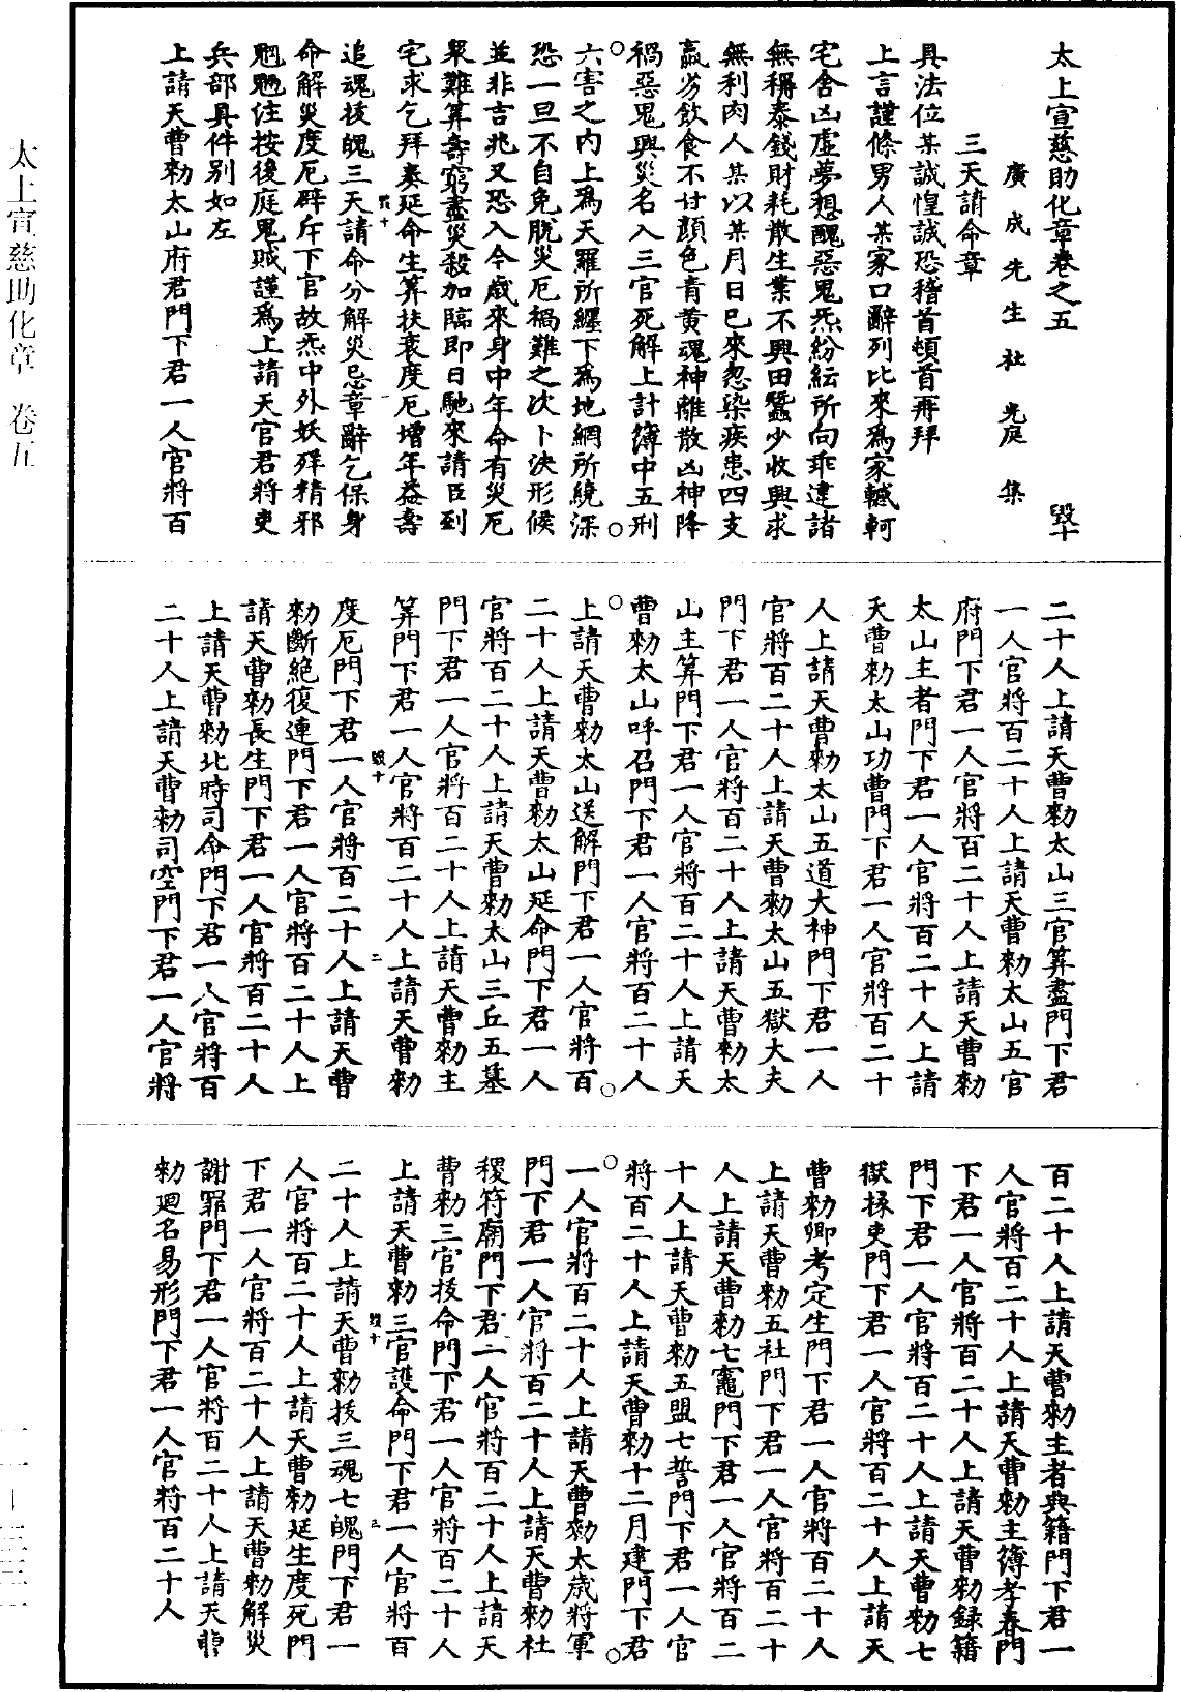 太上宣慈助化章卷之五 毀十
廣成先生杜光庭集
三天請命章
具法位某誠惶誠恐稽首頓首再拜
上言謹條男人某家口辭列比來爲家轗軻
宅舍凶虛夢想醜惡鬼炁紛紜所向乖違諸
無稱泰錢財耗散生業不興田蠶少收興求
無利肉人某以某月日已來忽染疾患四支
羸劣飲食不甘顏色青黃魂神離散凶神降
禍惡鬼興災名入三官死解上計簿中五刑
六害之內上爲天羅所纏下爲地網所繞深
恐一旦不自免脫災厄禍難之次卜決形候
並非吉兆又恐入今歲來身中年命有災厄
衆難筭壽窮盡災殺加臨即日馳來請臣到
宅求乞拜奏延命生筭扶衰度厄增年益壽
毀十 一
追魂拔魄三天請命分解災忌章辭乞保身
命解災度厄辟斥下官故炁中外妖殍精邪
魍魎注按後庭鬼賊謹爲上請天官君將吏
兵部具件別如左
上請天曹勑太山府君門下君一人官將百
二十人上請天曹勑太山三官筭盡門下君
一人官將百二十人上請天曹勑太山五官
府門下君一人官將百二十人上請天曹勑
太山主者門下君一人官將百二十人上請
天曹勑太山功曹門下君一人官將百二十
人上請天曹勑太山五道大神門下君一人
官將百二十人上請天曹勑太山五獄大夫
門下君一人官將百二十人上請天曹勑太
山主筭門下君一人官將百二十人上請天
曹勑太山呼召門下君一人官將百二十人
上請天曹勑太山送解門下君一人官將百
二十人上請天曹勑太山延命門下君一人
官將百二十人上請天曹勑太山三丘五墓
門下君一人官將百二十人上請天曹勑主
筭門下君一人官將百二十人上請天曹勑
毀十 二
度厄門下君一人官將百二十人上請天曹
勑斷絕復連門下君一人官將百二十人上
請天曹勑長生門下君一人官將百二十人
上請天曹勑北時司命門下君一人官將百
二十人上請天曹勑司空門下君一人官將
百二十人上請天曹勑主者典籍門下君一
人官將百二十人上請天曹勑主簿孝春門
下君一人官將百二十人上請天曹勑録籍
門下君一人官將百二十人上請天曹勑七
獄掾吏門下君一人官將百二十人上請天
曹勑卿考定生門下君一人官將百二十人
上請天曹勑五社門下君一人官將百二十
人上請天曹勑七竈門下君一人官將百二
十人上請天曹勑五盟七誓門下君一人官
將百二十人上請天曹勑十二月建門下君
一人官將百二十人上請天曹勑太歲將軍
門下君一人官將百二十人上請天曹勑社
稷符廟門下君一人官將百二十人上請天
曹勑三官拔命門下君一人官將百二十人
上請天曹勑三官護命門下君一人官將百
毀十 三
二十人上請天曹勑拔三魂七魄門下君一
人官將百二十人上請天曹勑延生度死門
下君一人官將百二十人上請天曹勑解災
謝罪門下君一人官將百二十人上請天曹
勑廻名易形門下君一人官將百二十人
太上宣慈助化章 卷五